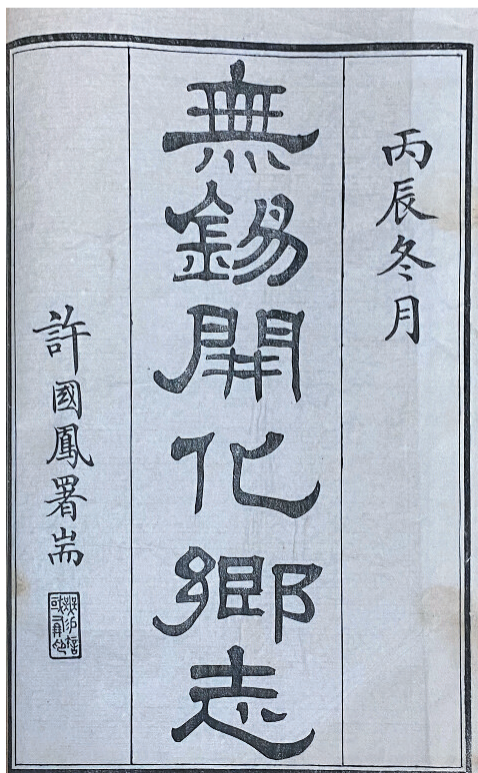 丙辰冬月
無錫開化鄉志
許國鳳署耑